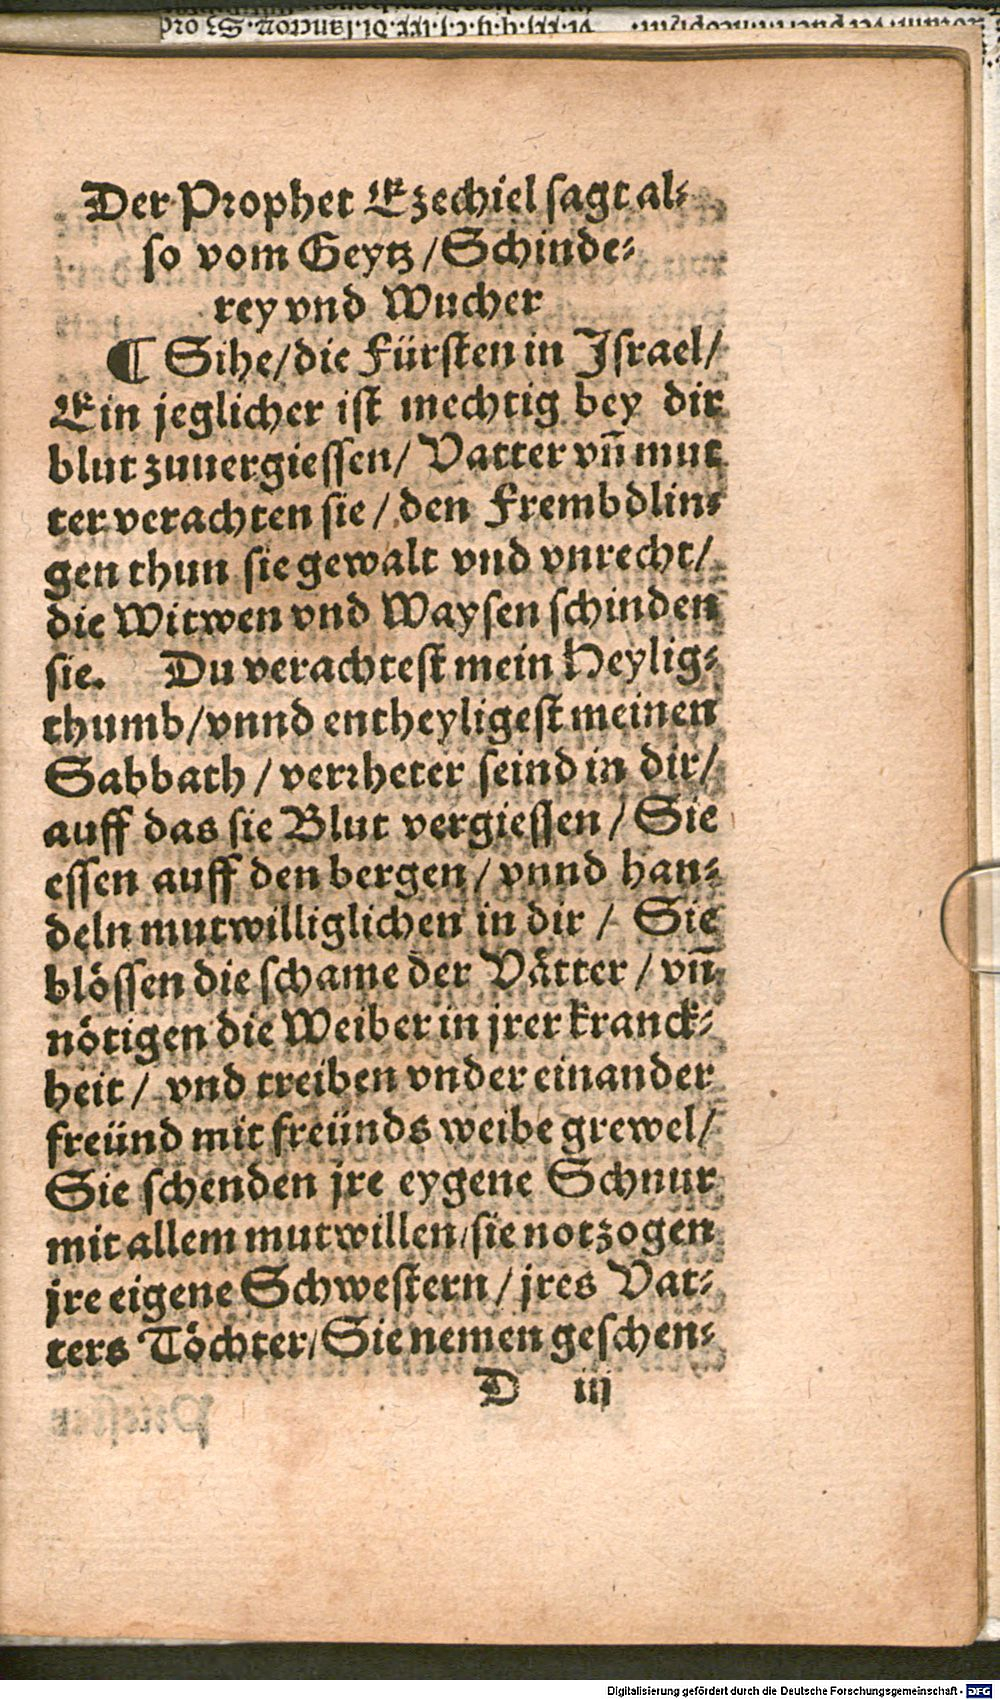 Der Prophet Ezechiel sagt al⸗
so vom Geytz / Schinde⸗
rey vnd Wucher
¶ Sihe / die Fürsten in Israel /
Ein jeglicher ist mechtig bey dir
blut zuuergiessen / Vatter vn̄ mut
ter verachten sie / den Frembdlin⸗
gen thun sie gewalt vnd vnrecht /
die Witwen vnd Waysen schinden
sie. Du verachtest mein Heylig⸗
thumb / vnnd entheyligest meinen
Sabbath / verrheter seind in dir /
auff das sie Blut vergiessen / Sie
essen auff den bergen / vnnd han⸗
deln mutwilliglichen in dir / Sie
blössen die schame der Vätter / vn̄
nötigen die Weiber in jrer kranck⸗
heit / vnd treiben vnder einander
freünd mit freünds weibe grewel /
Sie schenden jre eygene Schnur
mit allem mutwillen / sie notzogen
jre eigene Schwestern / jres Vat⸗
ters Töchter / Sie nemen geschen⸗
D iij
Digitalisierung gefördert durch die Deutsche Forschungsgemeinschaft - DFG